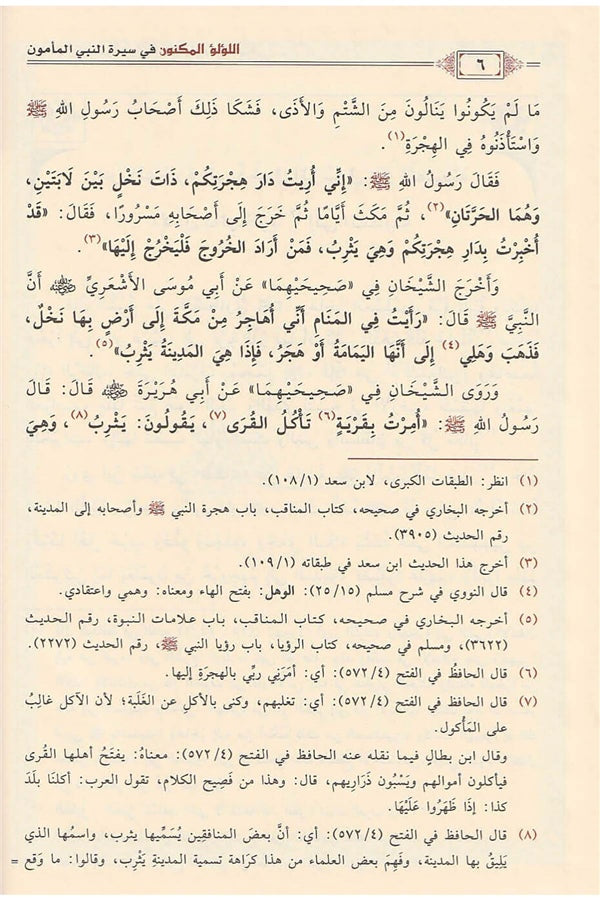 اللؤلؤ المكنون في سيرة النبي المأمون
٦
مَا لَمْ يَكُونُوا يَنَالُونَ مِنَ الشَّتْمِ وَالأَذَى، فَشَكَا ذَلِكَ أَصْحَابُ رَسُولِ اللهِ ﷺ
وَاسْتَأْذَنُوهُ فِي الهِجْرَةِ(١).
فَقَالَ رَسُولُ اللهِ ﷺ: «إِنِّي أُرِيتُ دَارَ هِجْرَتِكُمْ، ذَاتَ نَخْلٍ بَيْنَ لَابَتَيْنِ،
وَهُمَا الحَرَّتَانِ»(٢)، ثُمَّ مَكَثَ أَيَّامًا ثُمَّ خَرَجَ إِلَى أَصْحَابِهِ مَسْرُورًا، فَقَالَ: «قَدْ
أُخْبِرْتُ بِدَارِ هِجْرَتِكُمْ وَهِيَ يَثْرِبُ، فَمَنْ أَرَادَ الخُرُوجَ فَلْيَخْرُجْ إِلَيْهَا»(٣).
وَأَخْرَجَ الشَّيْخَانِ فِي «صَحِيحَيْهِمَا» عَنْ أَبِي مُوسَى الأَشْعَرِيِّ رضي الله عنه أَنَّ
النَّبِيَّ ﷺ قَالَ: «رَأَيْتُ فِي المَنَامِ أَنِّي أُهَاجِرُ مِنْ مَكَّةَ إِلَى أَرْضٍ بِهَا نَخْلٌ،
فَذَهَبَ وَهَلِي(٤) إِلَى أَنَّهَا اليَمَامَةُ أَوْ هَجَرُ، فَإِذَا هِيَ المَدِينَةُ يَثْرِبُ»(٥).
وَرَوَى الشَّيْخَانِ فِي «صَحِيحَيْهِمَا» عَنْ أَبِي هُرَيْرَةَ رضي الله عنه قَالَ: قَالَ
رَسُولُ اللهِ ﷺ: «أُمِرْتُ بِقَرْيَةٍ(٦) تَأْكُلُ القُرَى(٧)، يَقُولُونَ: يَثْرِبُ(٨)، وَهِيَ
(١) انظر: الطبقات الكبرى، لابن سعد (١/١٠٨).
(٢) أخرجه البخاري في صحيحه، كتاب المناقب، باب هجرة النبي ﷺ وأصحابه إلى المدينة،
رقم الحديث (٣٩٠٥).
(٣) أخرج هذا الحديث ابن سعد في طبقاته (١/١٠٩).
(٤) قال النووي في شرح مسلم (١٥/٢٥): الوهل: بفتح الهاء ومعناه: وهمي واعتقادي.
(٥) أخرجه البخاري في صحيحه، كتاب المناقب، باب علامات النبوة، رقم الحديث
(٣٦٢٢)، ومسلم في صحيحه، كتاب الرؤيا، باب رؤيا النبي ﷺ، رقم الحديث (٢٢٧٢).
(٦) قال الحافظُ في الفتح (٤/٥٧٢): أي: أمَرَنِي ربِّي بالهجرَةِ إليها.
(٧) قال الحافظ في الفتح (٤/٥٧٢): أي: تغلبهم، وكنى بالأكلِ عن الغَلَبة؛ لأن الآكل غالِبٌ
على المَأكول.
وقال ابن بطالٍ فيما نقله عنه الحافظ في الفتح (٤/٥٧٢): معناهُ: يفتَحُ أهلها القُرى
فيأكلون أموالهم ويَسْبُون ذَرَارِيهم، قال: وهذا من فَصِيح الكلام، تقول العرب: أكلنَا بلَدَ
كذا: إذَا ظَهَرُوا عَلَيْهَا.
(٨) قال الحافظ في الفتح (٤/٥٧٢): أي: أنَّ بعضَ المنافقِين يُسَمِّيها يثرب، واسمُها الذي
يَلِيقُ بها المدينة، وفَهِمَ بعض العلماء من هذا كرَاهة تسمية المدينةِ يَثْرِب، وقالوا: ما وَقع =